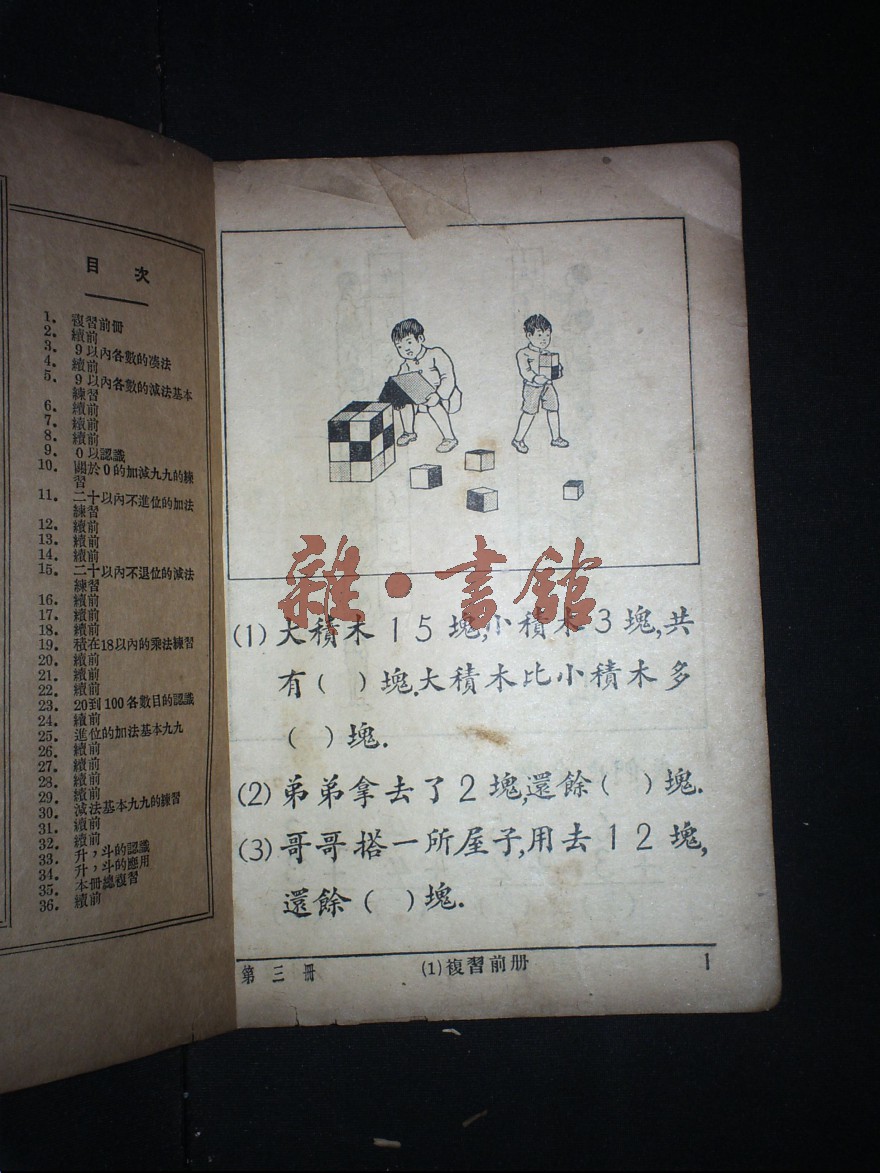 目次
1. 複習前冊
2. 續前
3. 9以內各數的湊法
4. 續前
5. 9以內各數的減法基本
練習
6. 續前
7. 續前
8. 續前
9. 0以認識
10. 關於0的加減九九的練
習
11. 二十以內不進位的加法
練習
12. 續前
13. 續前
14. 續前
15. 二十以內不退位的減法
練習
16. 續前
17. 續前
18. 續前
19. 積在18以內的乘法練習
20. 續前
21. 續前
22. 續前
23. 20到100各數目的認識
24. 續前
25. 進位的加法基本九九
26. 續前
27. 續前
28. 續前
29. 續前
30. 減法基本九九的練習
31. 續前
32. 續前
33. 升,斗的認識
34. 升,斗的應用
35. 本冊總複習
36. 續前
雜·書館
(1)大積木15塊,小積木3塊,共
有( )塊.大積木比小積木多
( )塊.
(2)弟弟拿去了2塊,還餘( )塊.
(3)哥哥搭一所屋子,用去12塊,
還餘( )塊.
第三冊 (1)複習前册 1